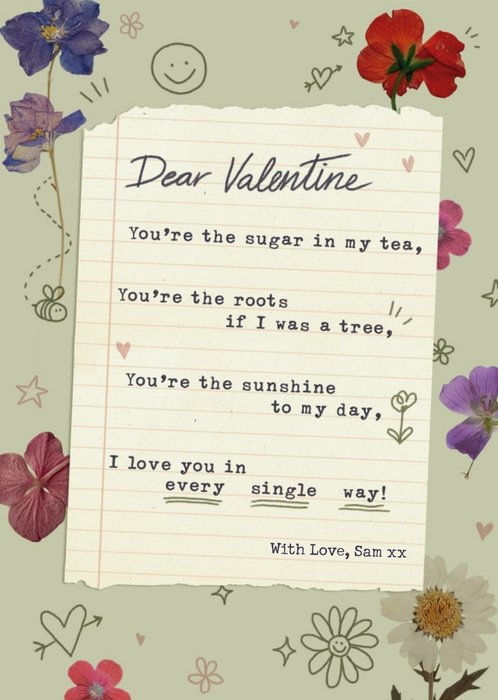 Dear Valentine
You're the sugar in my tea,
You're the roots
if I was a tree,
You're the sunshine
to my day,
I love you in
every single way!
With Love, Sam xx